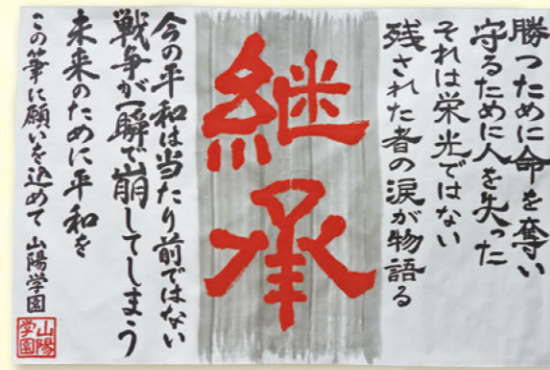 勝つために命を奪い
守るために人を失った
それは栄光ではない
残された者の涙が物語る
継承
今の平和は当たり前ではない
戦争が一瞬で崩してしまう
未来のために平和を
この筆に願いを込めて 山陽学園
山陽学園